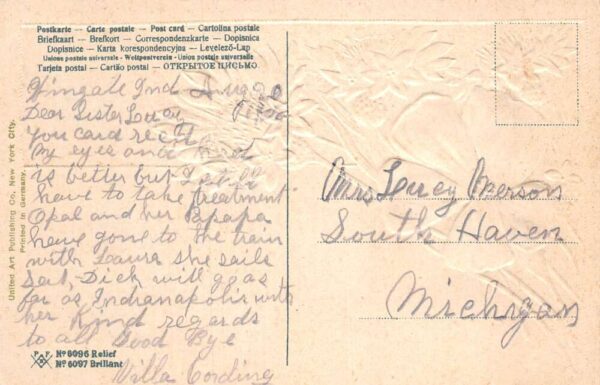 Postkarte — Carte postale — Post card — Cartolina postale
Briefkaart — Brefkort — Correspondenzkarte — Dopisnica
Dopisnice — Karta korespondencyjna — Levelező-Lap
Unions postale universale - Weltpostverein - Union postale universelle
Tarjeta postal — Cartão postal — ОТКРЫТОЕ ПИСЬМО
Wingate Ind Aug
Dear Sister
You card recd
My eyes and
is better but I still
have to take treatment
Opal and her Papapa
have gone to the train
with Laura she sails
Sat. Dick will go as
far as Indianapolis with
her Kind regards
to all Good Bye
Villa Cording
Mrs Leucy Merson
South Haven
Michigan
United Art Publishing Co. New York City.
Printed in Germany.
No 6096 Relief
No 6097 Brillant